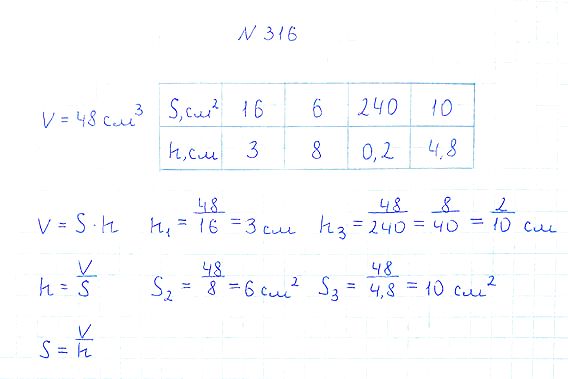 N 316
V = 48 см³
S, см² 16 6 240 10
h, см 3 8 0,2 4,8
V = S · h h₁ = 48/16 = 3 см h₃ = 48/240 = 8/40 = 2/10 см
h = V/S S₂ = 48/8 = 6 см² S₃ = 48/4,8 = 10 см²
S = V/h